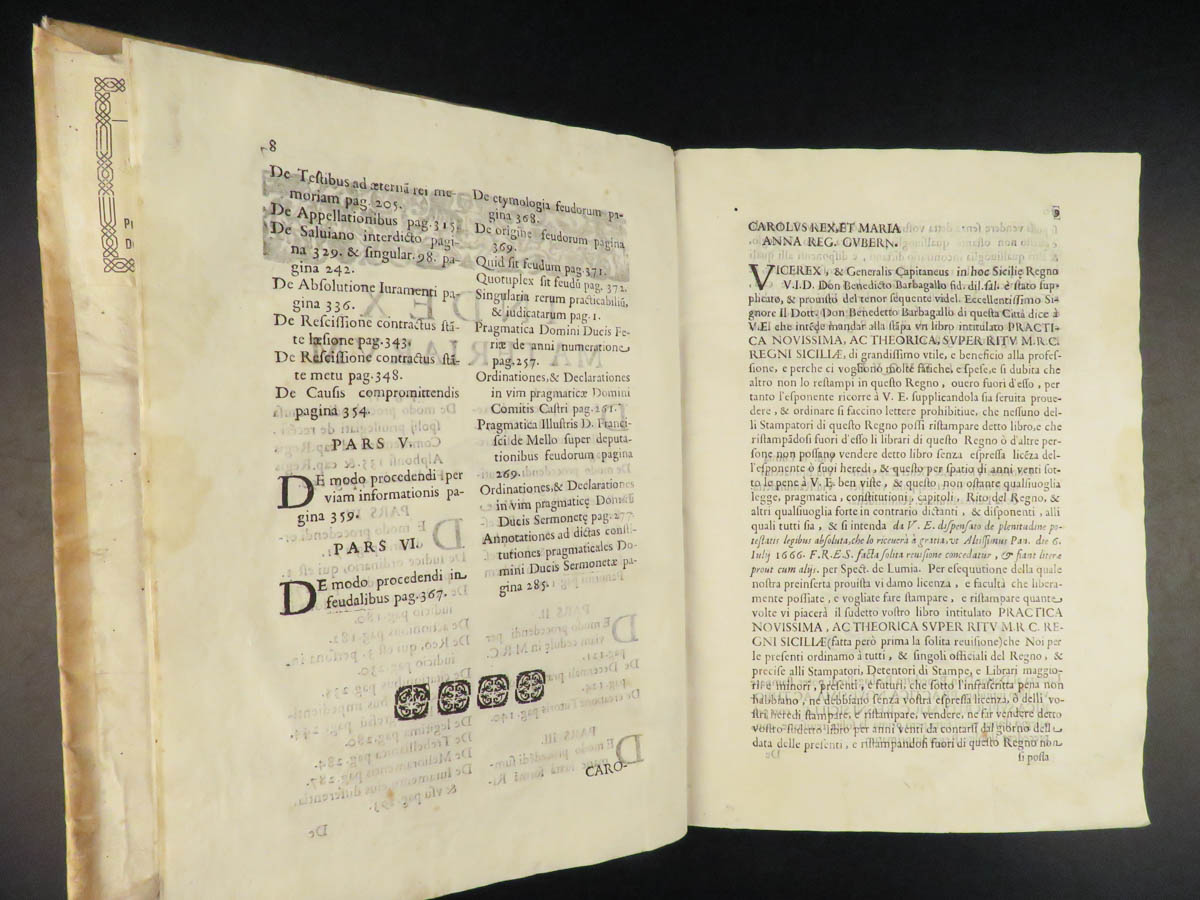 8
De Testibus ad æternã rei me-
moriam pag. 205.
De Appellationibus pag. 315.
De Saluiano interdicto pagi-
na 329. & singular. 98. pa-
gina 242.
De Absolutione Iuramenti pa-
gina 336.
De Rescissione contractus stã-
te læsione pag. 343.
De Rescissione contractus stã-
te metu pag. 348.
De Causis compromittendis
pagina 354.
PARS V.
DE modo procedendi per
viam informationis pa-
gina 359.
PARS VI.
DE modo procedendi in
feudalibus pag. 367.
De etymologia feudorum pa-
gina 368.
De origine feudorum pagina
369.
Quid sit feudum pag. 371.
Quotuplex sit feudũ pag. 372.
Singularia rerum practicabiliũ,
& iudicatarum pag. 1.
Pragmatica Domini Ducis Fe-
riæ de anni numeratione
pag. 257.
Ordinationes, & Declarationes
in vim pragmaticæ Domini
Comitis Castri pag. 261.
Pragmatica Illustris D. Franci-
sci de Mello super deputa-
tionibus feudorum pagina
269.
Ordinationes, & Declarationes
in vim pragmaticę Domini
Ducis Sermonetę pag. 277.
Annotationes ad dictas consti-
tutiones pragmaticales Do-
mini Ducis Sermonetæ pa-
gina 285.
CARO-
9
CAROLVS REX, ET MARIA
ANNA REG. GVBERN.
VICEREX, & Generalis Capitaneus in hoc Sicilię Regno
V.I.D. Don Benedicto Barbagallo fid. dil. sal. è stato sup-
plicato, & prouisto del tenor sequente videl. Eccellentissimo Si-
gnore Il Dott. Don Benedetto Barbagallo di questa Città dice à
V.E. che intẽde mandar alla stãpa vn libro intitulato PRACTI-
CA NOVISSIMA, AC THEORICA, SVPER RITV M.R.C.
REGNI SICILIÆ, di grandissimo vtile, e beneficio alla profes-
sione, e perche ci vogliono molte fatiche, e spese, e si dubita che
altro non lo restampi in questo Regno, ouero fuori d'esso, per
tanto l'esponente ricorre à V. E. supplicandola sia seruita proue-
dere, & ordinare si faccino lettere prohibitiue, che nessuno del-
li Stampatori di questo Regno possi ristampare detto libro, e che
ristampãdosi fuori d'esso li librari di questo Regno ò d'altre per-
sone non possano vendere detto libro senza espressa licẽza del-
l'esponente ò suoi heredi, & questo per spatio di anni venti sot-
to le pene à V. E. ben viste, & questo non ostante qualsiuoglia
legge, pragmatica, constitutioni, capitoli, Rito del Regno, &
altri qualsiuoglia forte in contrario dictanti, & disponenti, alli
quali tutti sia, & si intenda da V. E. dispensato de plenitudine po-
testatis legibus absoluta, che lo riceuerà à gratia, vt Altissimus Pan. die 6.
Iulij 1666. F.R.E.S. facta solita reuisione concedatur, & fiant literæ
prout cum alijs. per Spect. de Lumia. Per esequutione della quale
nostra preinserta prouista vi damo licenza, e facultà che libera-
mente possiate, e vogliate fare stampare, e ristampare quante
volte vi piacerà il sudetto vostro libro intitulato PRACTICA
NOVISSIMA, AC THEORICA SVPER RITV M.R C. RE-
GNI SICILIÆ (fatta però prima la solita reuisione) che Noi per
le presenti ordinamo à tutti, & singoli officiali del Regno, &
precise alli Stampatori, Detentori di Stampe, e Librari maggio-
ri e minori, presenti, e futuri, che sotto l'infrascritta pena non
habbiano, ne debbiano senza vostra espressa licenza, ò delli vo-
stri heredi stampare, e ristampare, vendere, ne far vendere detto
vostro sudetto libro per anni venti da contarsi dal giorno della
data delle presenti, e ristampandosi fuori di questo Regno non
si possa